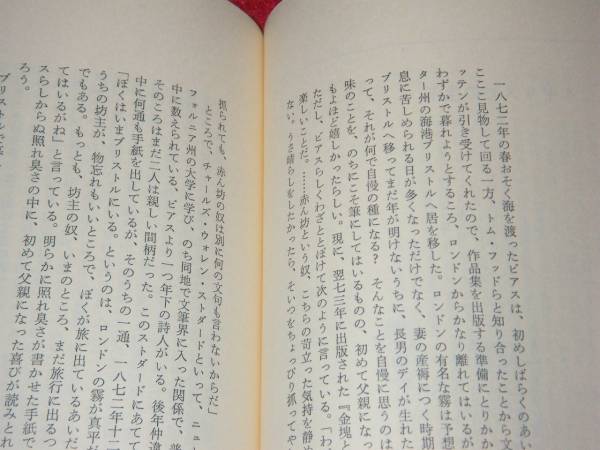 一八七二年の春おそく海を渡ったビアスは、初めしばらくのあい
こここ見物して回る一方、トム・フッドらと知り合ったことから文
ッテンが引き受けてくれたので、作品集を出版する準備にとりかか
わずかで暮れようとするころ、ロンドンからかなり離れてはいるが
ター州の海港ブリストルへ居を移した。ロンドンの有名な霧は予想
息に苦しめられる日が多くなっただけでなく、妻の産褥につく時期
ブリストルへ移ってまだ年が明けないうちに、長男のデイが生れた
って、それが何で自慢の種になる？　そんなことを自慢に思うのは
味のことを、のちにこそ筆にしてはいるものの、初めて父親になっ
もよほど嬉しかったらしい。現に、翌七三年に出版された『金塊と
ただし、ビアスらしくわざととぼけて次のように言っている。「わ
楽しいことだ。……赤ん坊という奴、こちらの苛立った気持を静め
ない。うさ晴らしをしたかったら、そいつをちょっぴり抓ってや
抓られても、赤ん坊の奴は別に何の文句も言わないからだ」
ところで、チャールズ・ウォレン・ストダードといって、ニュー
フォルニア州の大学に学び、のち同地で文筆界に入った関係で、普
中に数えられている、ビアスより一つ年下の詩人がいる。後年仲違
そのころはまだ二人は親しい間柄だった。このストダードにあてて
中に何通も手紙を出しているが、そのうちの一通、一八七二年十一
「ぼくはいまブリストルにいる。というのは、ロンドンの霧が真平だ
うちの坊主が、物忘れもいいところで、ぼくが旅に出ているあいだ
でもある。もっとも、坊主の奴、いまのところ、まだ旅行に出るつ
てはいるがね」と言っている。明らかに照れ臭さが書かせた手紙で
スらしからぬ照れ臭さの中に、初めて父親になった喜びが読みとれ
ろう。
ブリストル